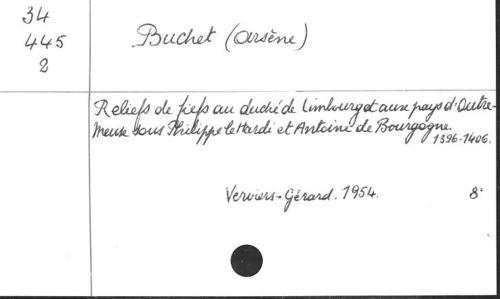 34
445
2
Buchet (Arsène)
Reliefs de fiefs au duché de Limbourg et aux pays d'Outre-
Meuse sous Philippe le Hardi et Antoine de Bourgogne.
1396-1406.
Verviers-Gérard. 1954. 8°